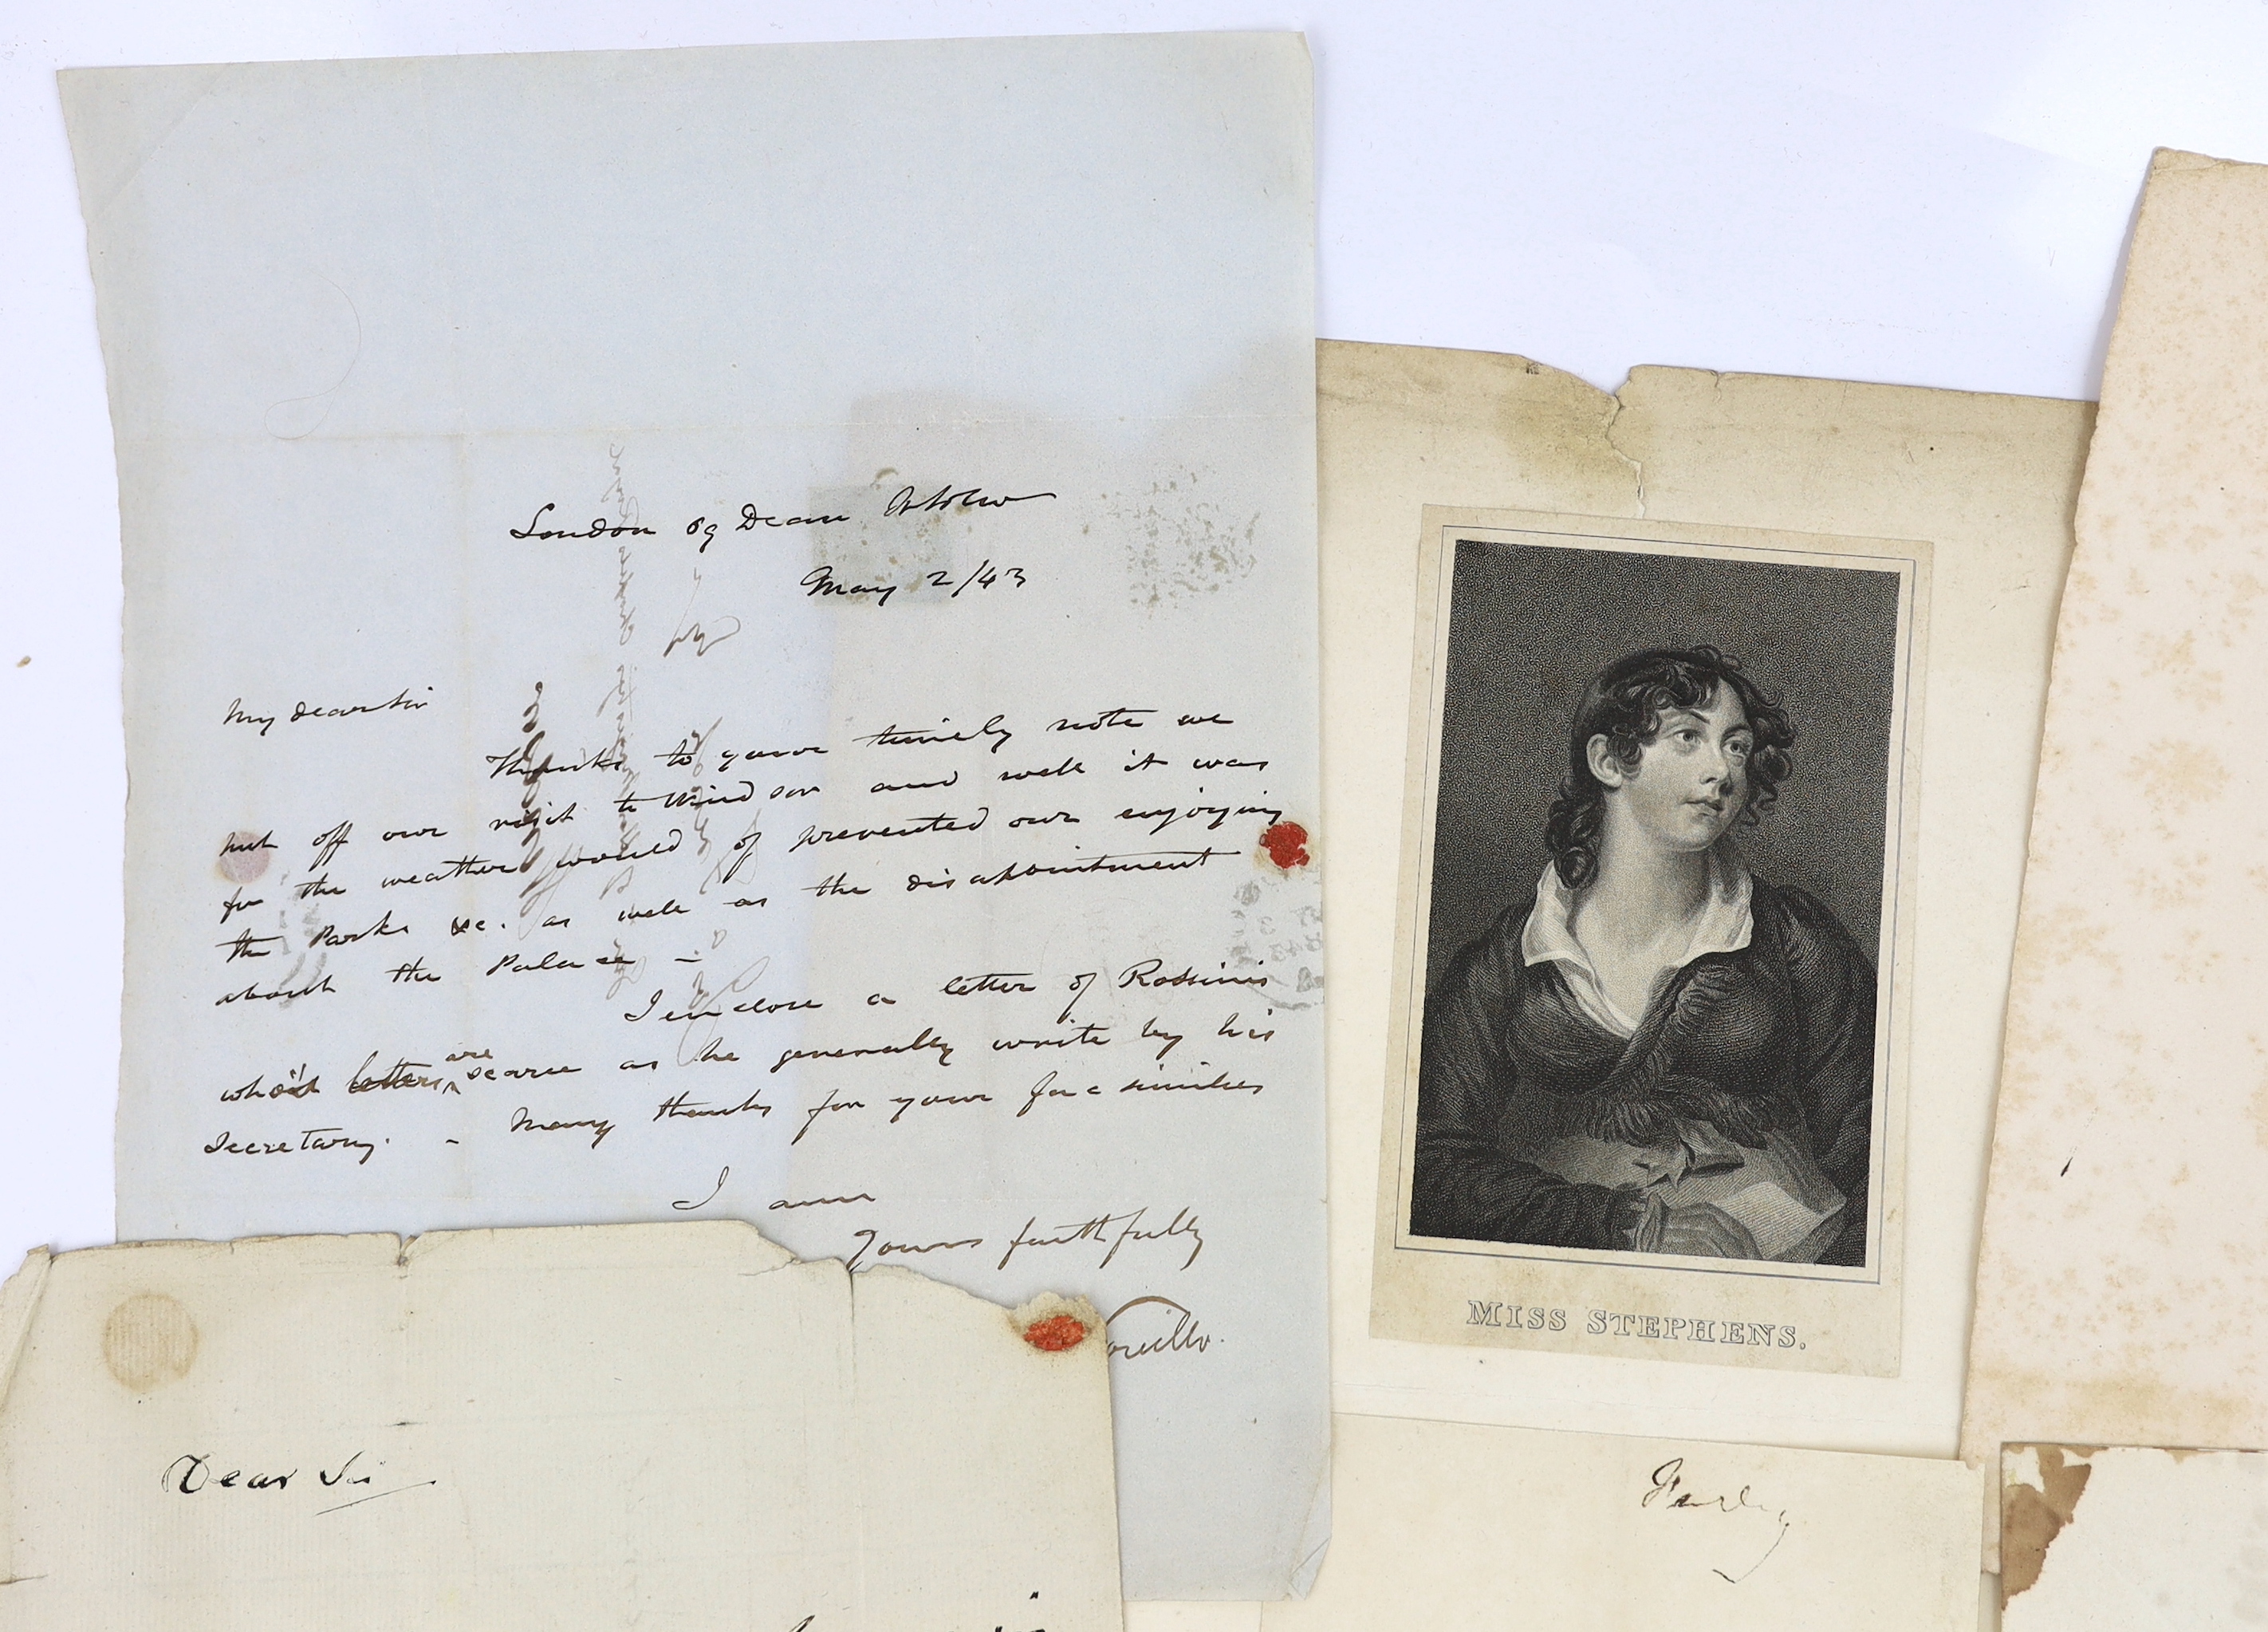 London 69 Dean
May 2/43
My dear Sir
Thanks to your timely note we
put off our visit to Windsor and well it was
for the weather would of prevented our enjoying
the Parks &c. as well as the disapointment
about the Palace –
I enclose a letter of Rossinis
who's letters are scarce as he generally write by his
Secretary. – Many thanks for your fac similies
I am
Yours faithfully
Dear Sir
MISS STEPHENS.